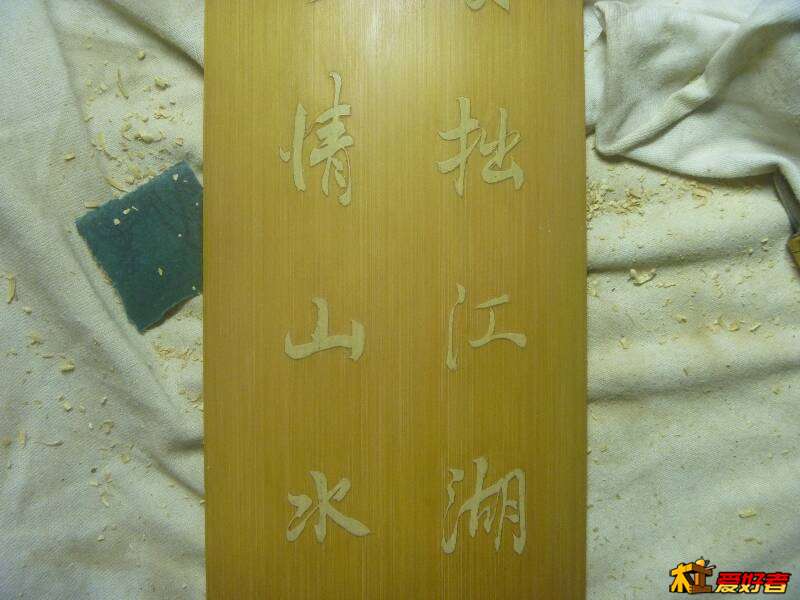 拙江湖
情山水
木工爱好者